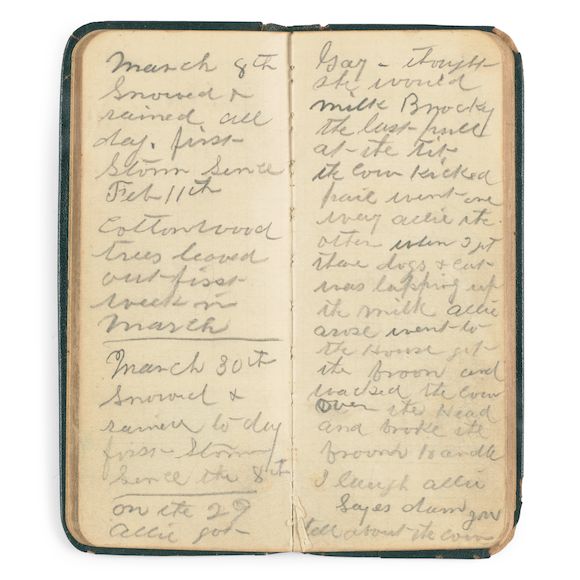 March 8th
Snowed &
rained all
day. first
Storm Since
Feb 11th
Cottonwood
trees leaved
out first
week in
March
March 30th
Snowed &
rained to day
first Storm
Since the 8th
on the 29
Allie got
Gay - thought
she would
milk Brocky
the last pull
at the tit
the Cow Kicked
pail went one
way allie the
other when I got
there dogs & cat
was lapping up
the milk allie
arose went to
the House got
the broom and
wacked the Cow
over the Head
and broke the
broom Handle
I laugh allie
Sayes dam you
tell about the cow